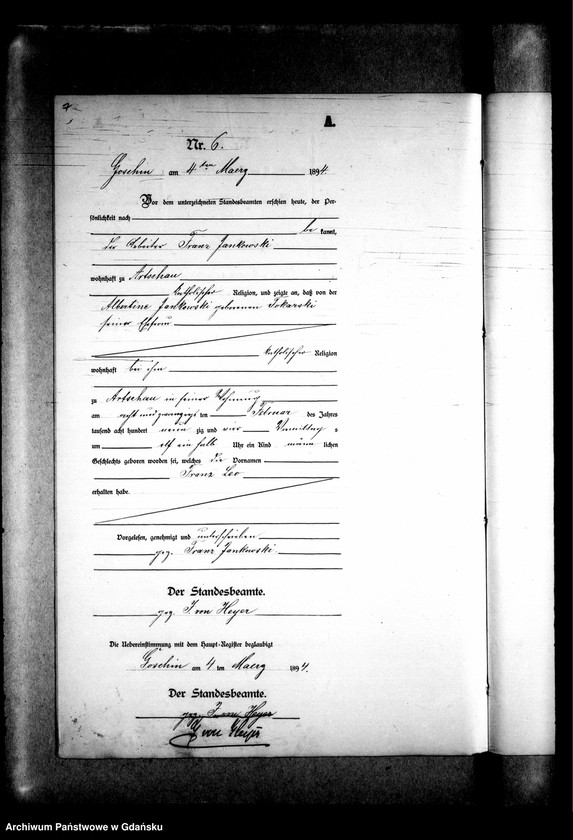 A.
Nr. 6.
Goschin am 4ten Maerz 1894.
Vor dem unterzeichneten Standesbeamten erschien heute, der Per-
sönlichkeit nach
be kannt,
der Arbeiter Franz Jankowski
wohnhaft zu Artschau
katholischer Religion, und zeigte an, daß von der
Albertine Jankowski geborenen Tokarski
seiner Ehefrau
katholischer Religion
wohnhaft bei ihm
zu Artschau in seiner Wohnung
am acht und zwanzigsten Februar des Jahres
tausend acht hundert neun zig und vier Vormittag s
um elf ein halb Uhr ein Kind männ lichen
Geschlechts geboren worden sei, welches die Vornamen
Franz Leo
erhalten habe.
Vorgelesen, genehmigt und unterschrieben
gez. Franz Jankowski
Der Standesbeamte.
gez. von Heyer
Die Uebereinstimmung mit dem Haupt-Register beglaubigt
Goschin am 4 ten Maerz 1894.
Der Standesbeamte.
gez. von Heyer
von Heyer
Archiwum Państwowe w Gdańsku